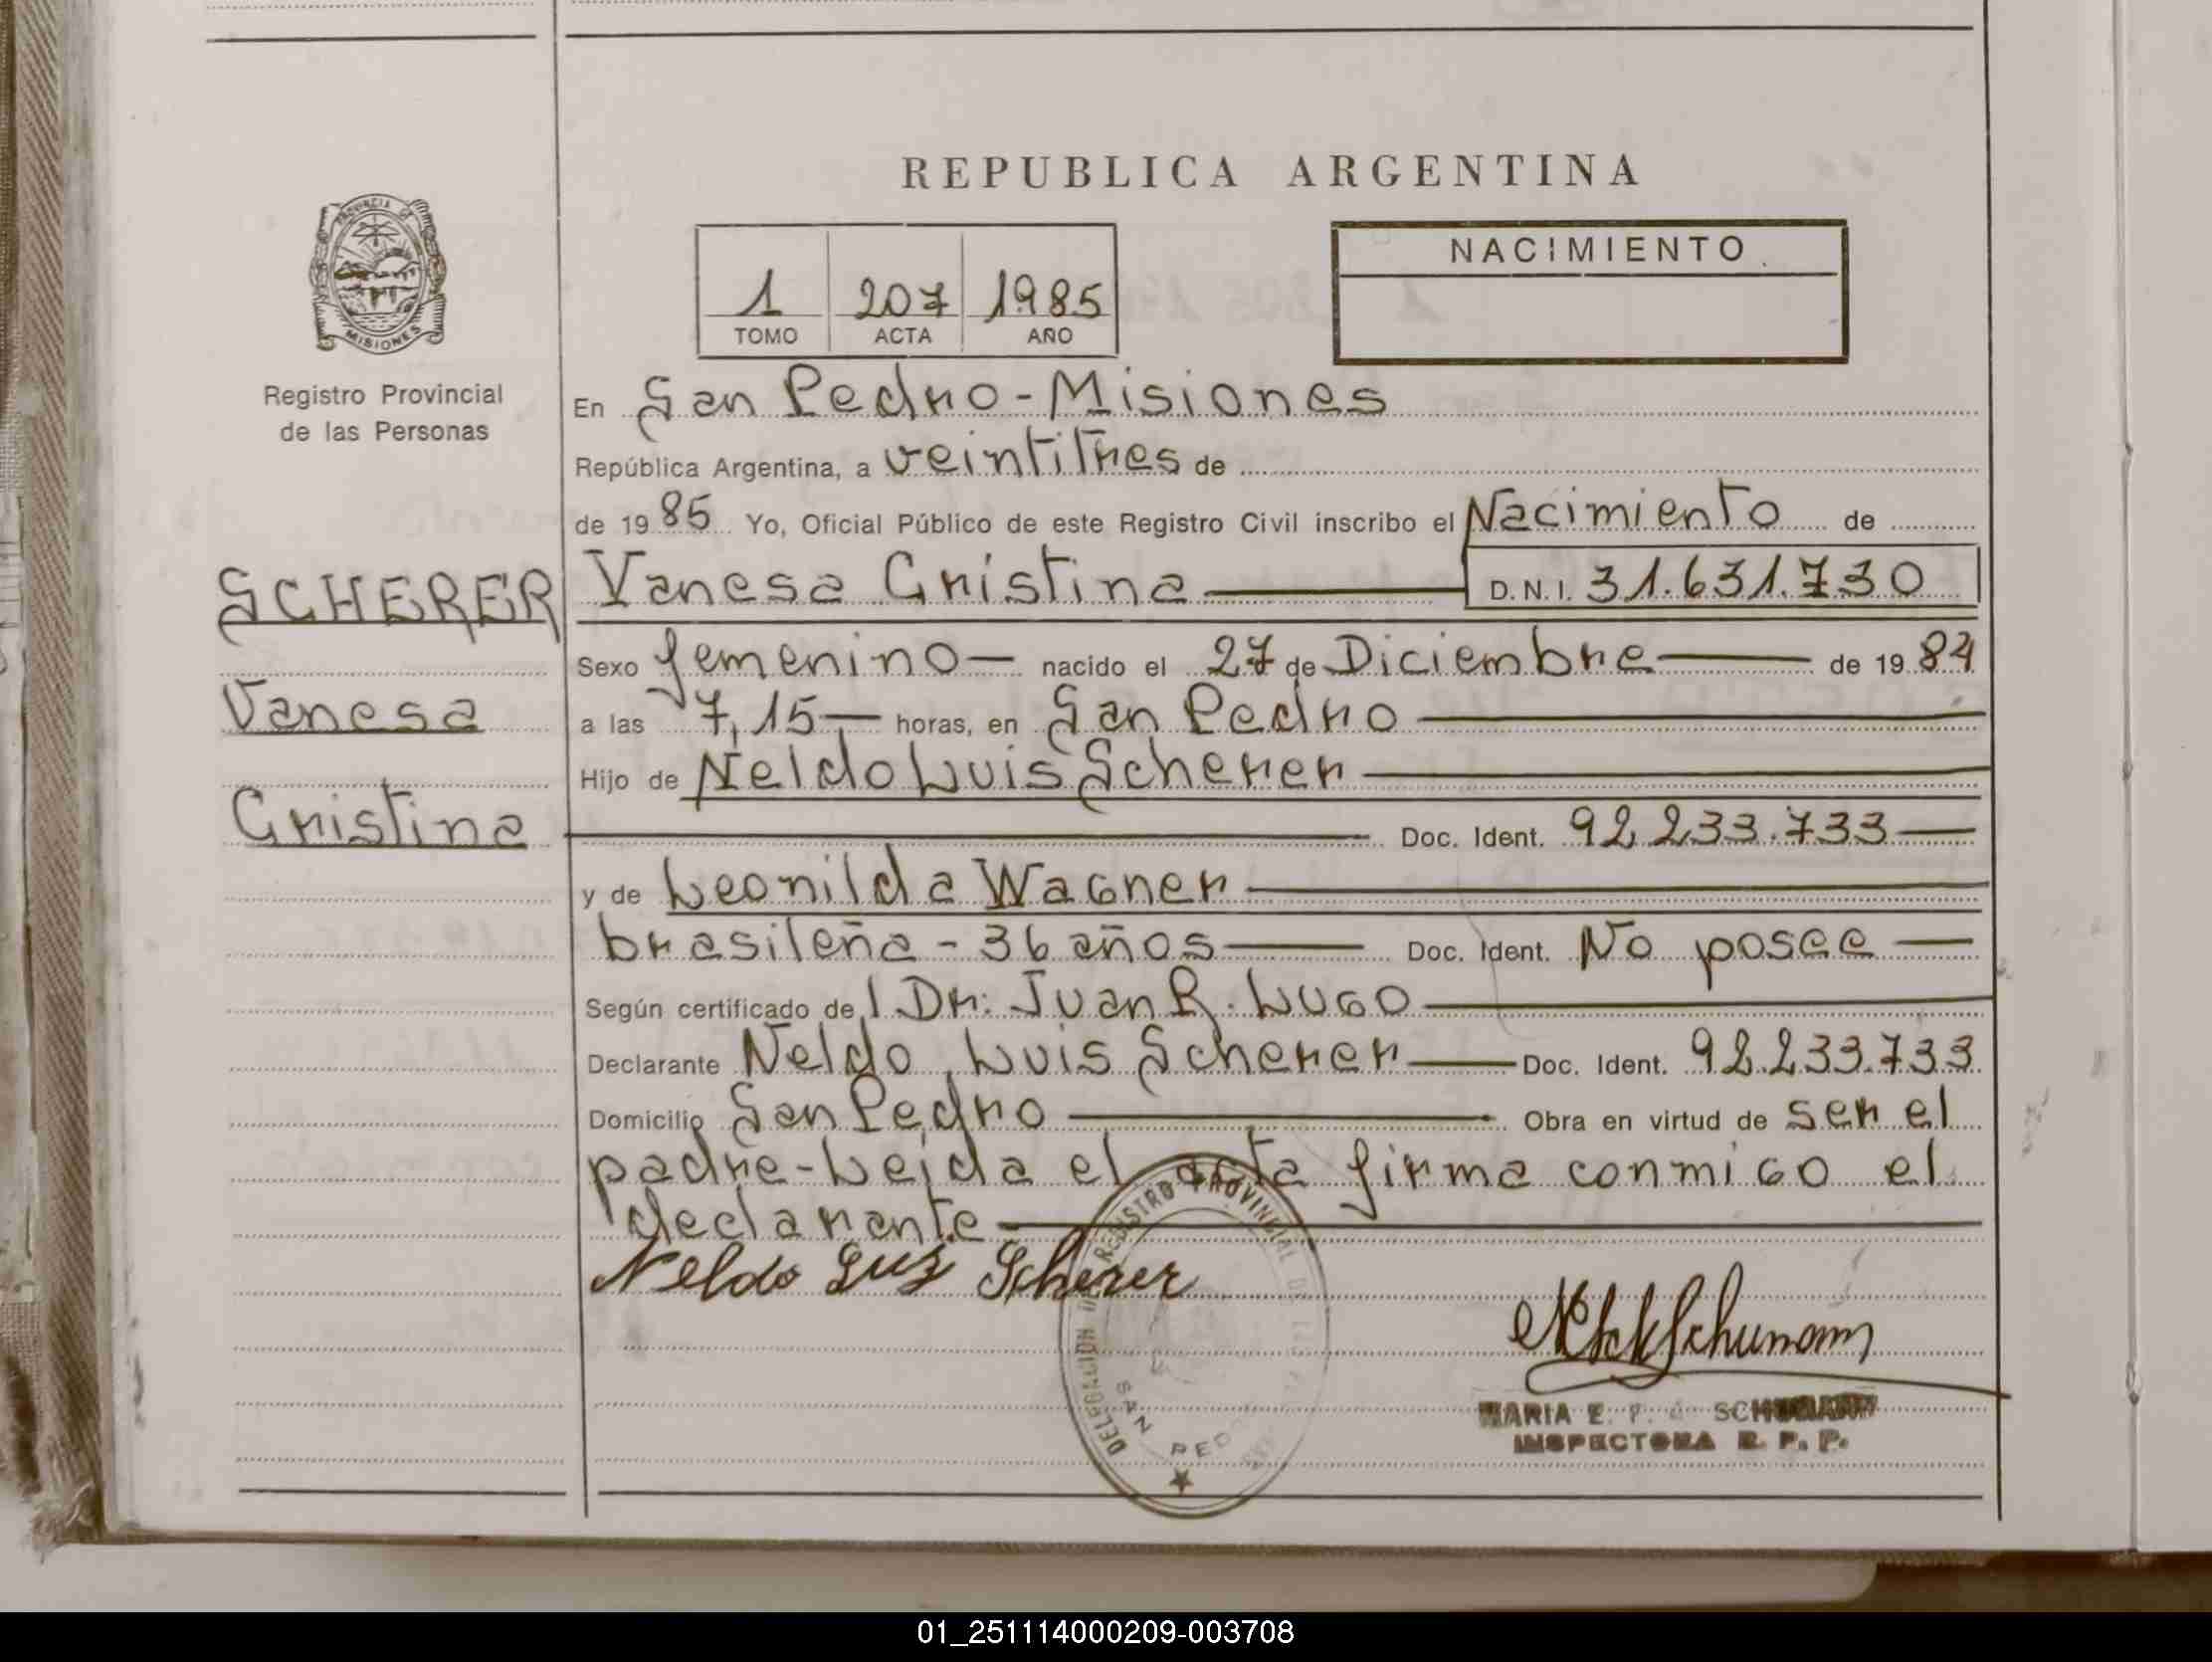 REPUBLICA ARGENTINA
PROVINCIA DE MISIONES
1 207 1985
TOMO ACTA AÑO
NACIMIENTO
Registro Provincial
de las Personas
SCHERER
Vanesa
Cristina
En San Pedro - Misiones
República Argentina, a veintitres de
de 19 85 Yo, Oficial Público de este Registro Civil inscribo el Nacimiento de
Vanesa Cristina D.N.I. 31.631.730
Sexo femenino nacido el 27 de Diciembre de 19 84
a las 7,15 horas, en San Pedro
Hijo de Neldo Luis Scherer
Doc. Ident. 92 233.733
y de Leonilda Wagner
brasileña - 36 años Doc. Ident. No posee
Según certificado de l Dr: Juan R. Lugo
Declarante Neldo Luis Scherer Doc. Ident. 92.233.733
Domicilio San Pedro Obra en virtud de ser el
padre - Leida el acta firma conmigo el
declarante
Neldo Luis Scherer
DELEGACION REGISTRO PROVINCIAL DE
SAN PEDRO
Schumann
MARIA E. P. de SCHUMANN
INSPECTORA R. P. P.
01_251114000209-003708